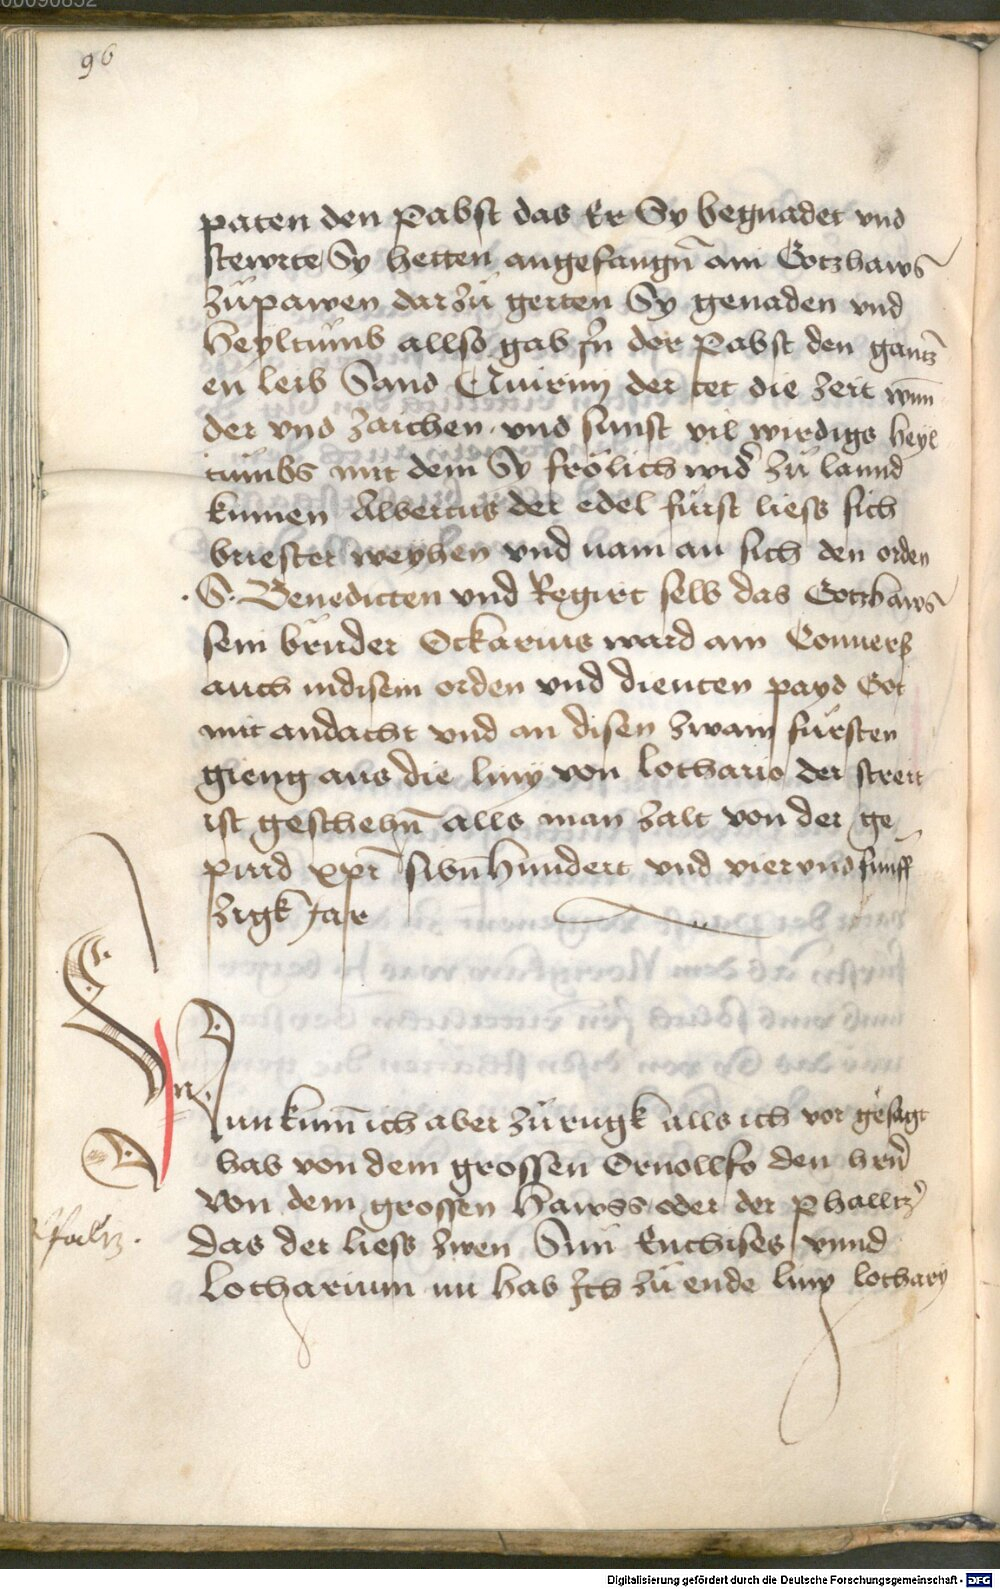 00090852
96
paten den Pabst das Er Sy begnadet vnd
stewrte Sy hetten angefangn̄ ain Gotzhaws
zůpawen dar zů gerten Sy genaden vnd
heyltůmb allso gab jn der Pabst den gantz̄
en leib Sand Quirinj der tet die zeit wūn
der vnd zaichen vnd sunst vil wirdigs heyl
tumbs mit dem Sy frölich wid' zů lannd
kumen Albertus der edel fürst liess sich
briester weyhen vnd nam an sich den orden
S. Benedicten vnd Regirt selb das Gotzhaws
sein brůder Ockarius ward ain Conuerß
auch indisem orden vnd dienten payd Got
mit andacht vnd an disen zwain fürsten
gieng aus die liny von lothario der streit
ist geschehn̄ alls man zalt von der ge
purd xpī sibn̄hundert vnd viervndfunff
zigk Jar
Nun kum̄ ich aber zůrugk alls ich vor gesagt
hab von dem grossen Ornollfo den hrn̄
von dem grossen hawss oder der phalltz'
das der liess zwen Sün Enchises vnnd
Lotharium nu hab Ich zů ende liny lothary
Pfaltz.
Digitalisierung gefördert durch die Deutsche Forschungsgemeinschaft - DFG